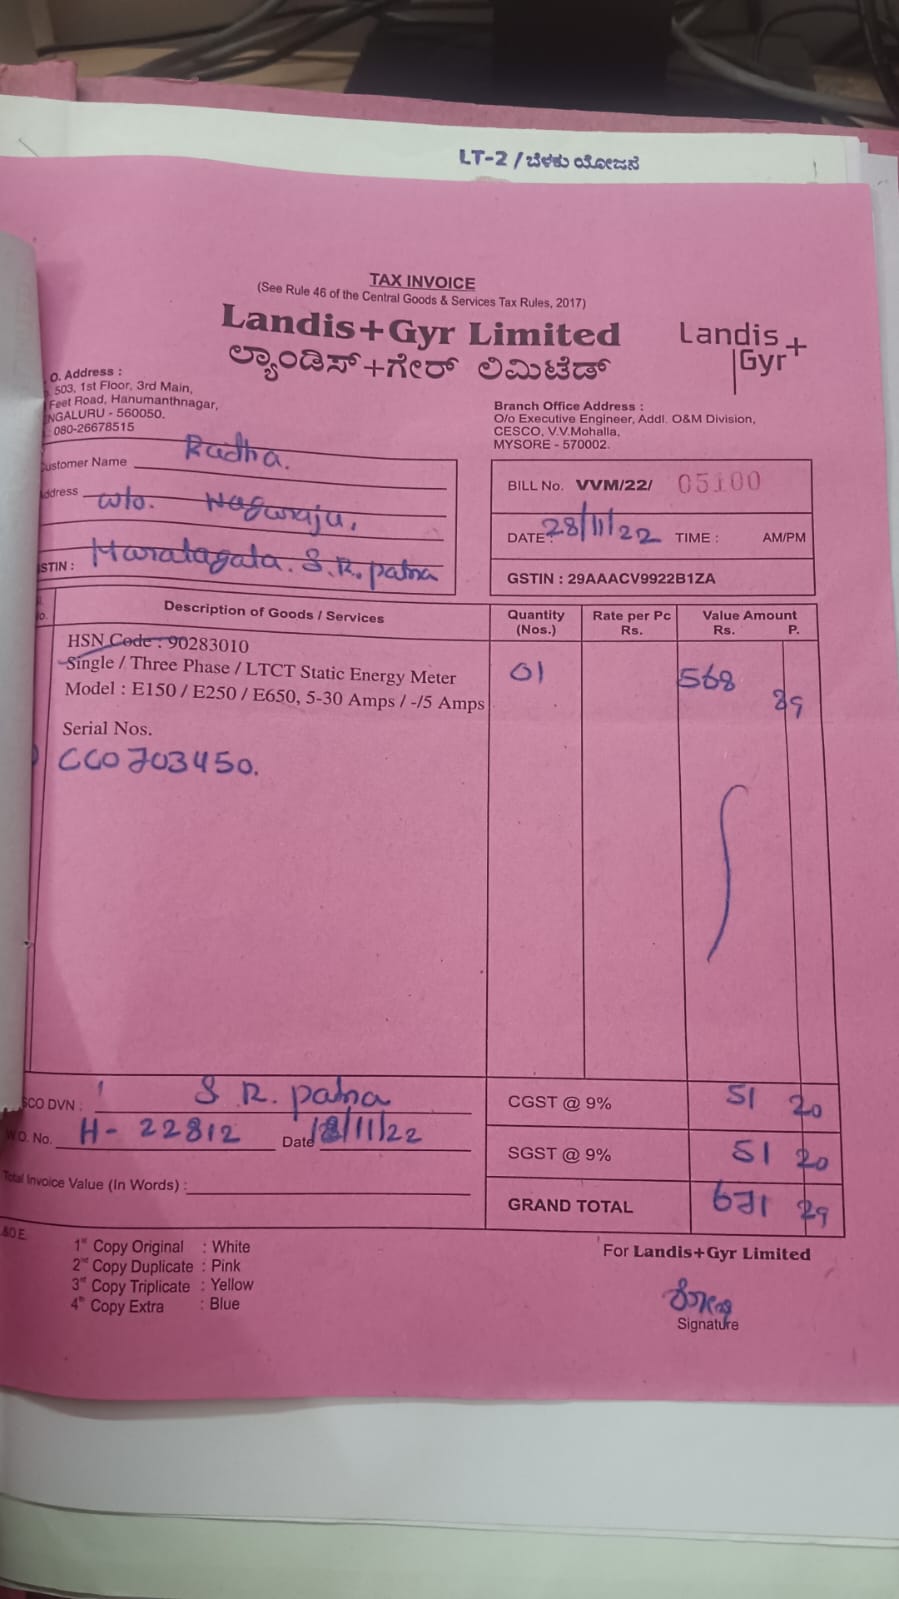 LT-2 / ಬೆಳಕು ಯೋಜನೆ
TAX INVOICE
(See Rule 46 of the Central Goods & Services Tax Rules, 2017)
Landis+Gyr Limited
ಲ್ಯಾಂಡಿಸ್+ಗೇರ್ ಲಿಮಿಟೆಡ್
Landis
Gyr+
O. Address :
503, 1st Floor, 3rd Main,
Feet Road, Hanumanthnagar,
NGALURU - 560050.
080-26678515
Branch Office Address :
O/o Executive Engineer, Addl. O&M Division,
CESCO, V.V.Mohalla,
MYSORE - 570002.
ustomer Name Radha.
ddress w/o. Nagaraju,
STIN : Haralagala. S.R. patna
BILL No. VVM/22/ 05100
DATE : 28/11/22 TIME : AM/PM
GSTIN : 29AAACV9922B1ZA
o. Description of Goods / Services Quantity (Nos.) Rate per Pc Rs. Value Amount Rs. P.
HSN Code : 90283010
Single / Three Phase / LTCT Static Energy Meter 01 568 89
Model : E150 / E250 / E650, 5-30 Amps / -/5 Amps
Serial Nos.
CC0703450.
SCO DVN : S R. patna
W.O. No. H- 22812 Date 18/11/22
Total Invoice Value (In Words) :
CGST @ 9% 51 20
SGST @ 9% 51 20
GRAND TOTAL 671 29
&OE.
1st Copy Original : White
2nd Copy Duplicate : Pink
3rd Copy Triplicate : Yellow
4th Copy Extra : Blue
For Landis+Gyr Limited
Signature